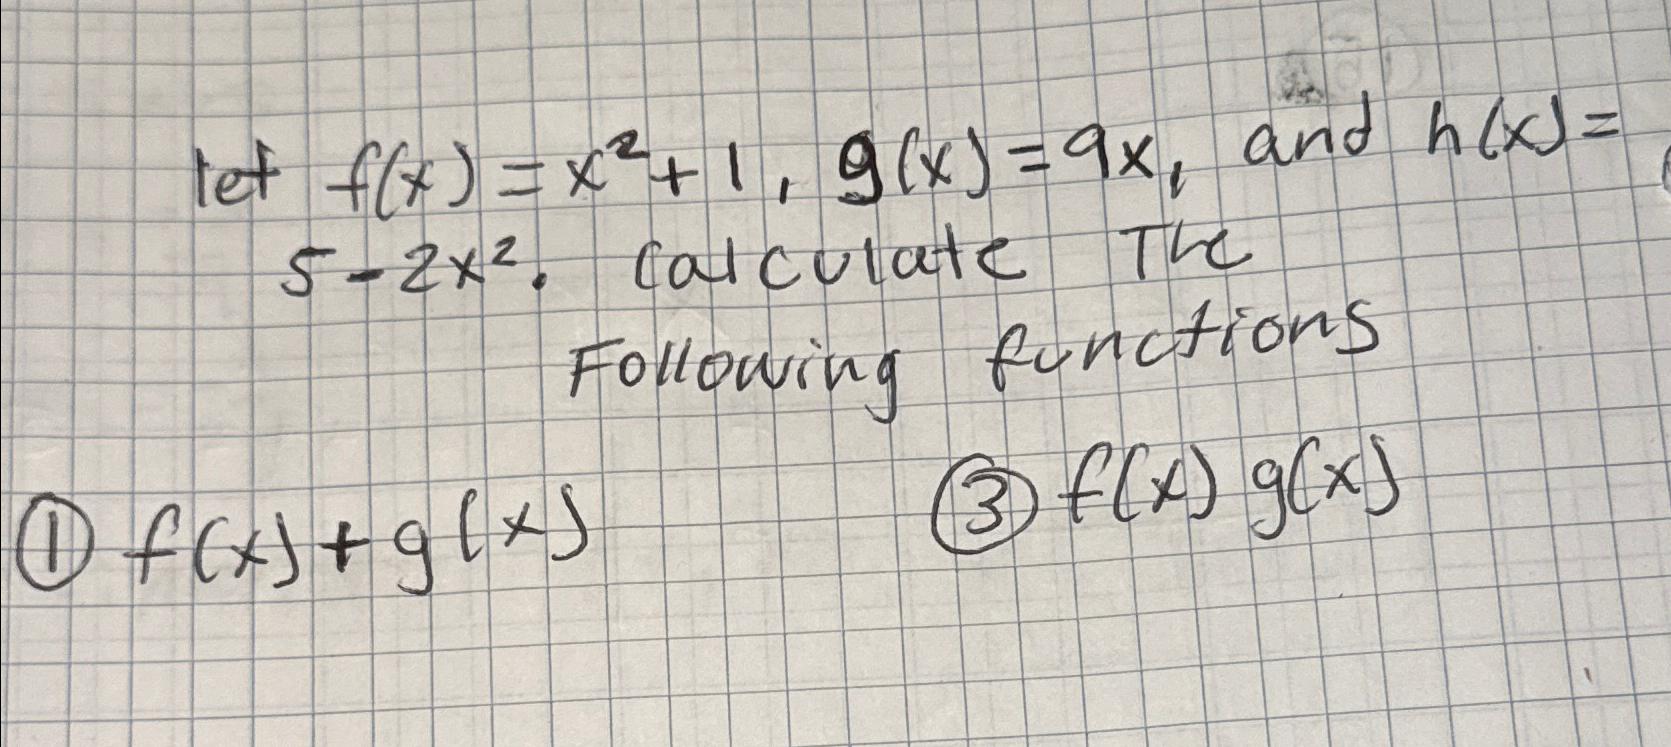 let f(x) = x²+1, g(x) = 9x, and h(x) =
5-2x². Calculate The
Following functions
① f(x) + g(x)
③ f(x) g(x)